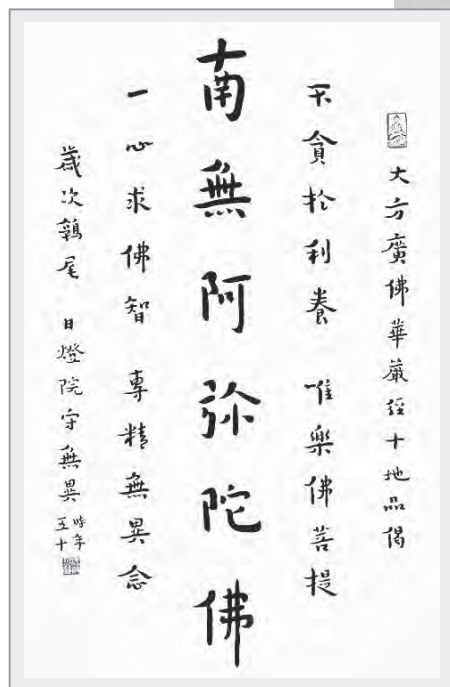 大方廣佛華嚴經十地品偈
不貪於利養 唯樂佛菩提
南無阿弥陀佛
一心求佛智 專精無異念
歲次鶉尾 日燈院守無異 時年五十